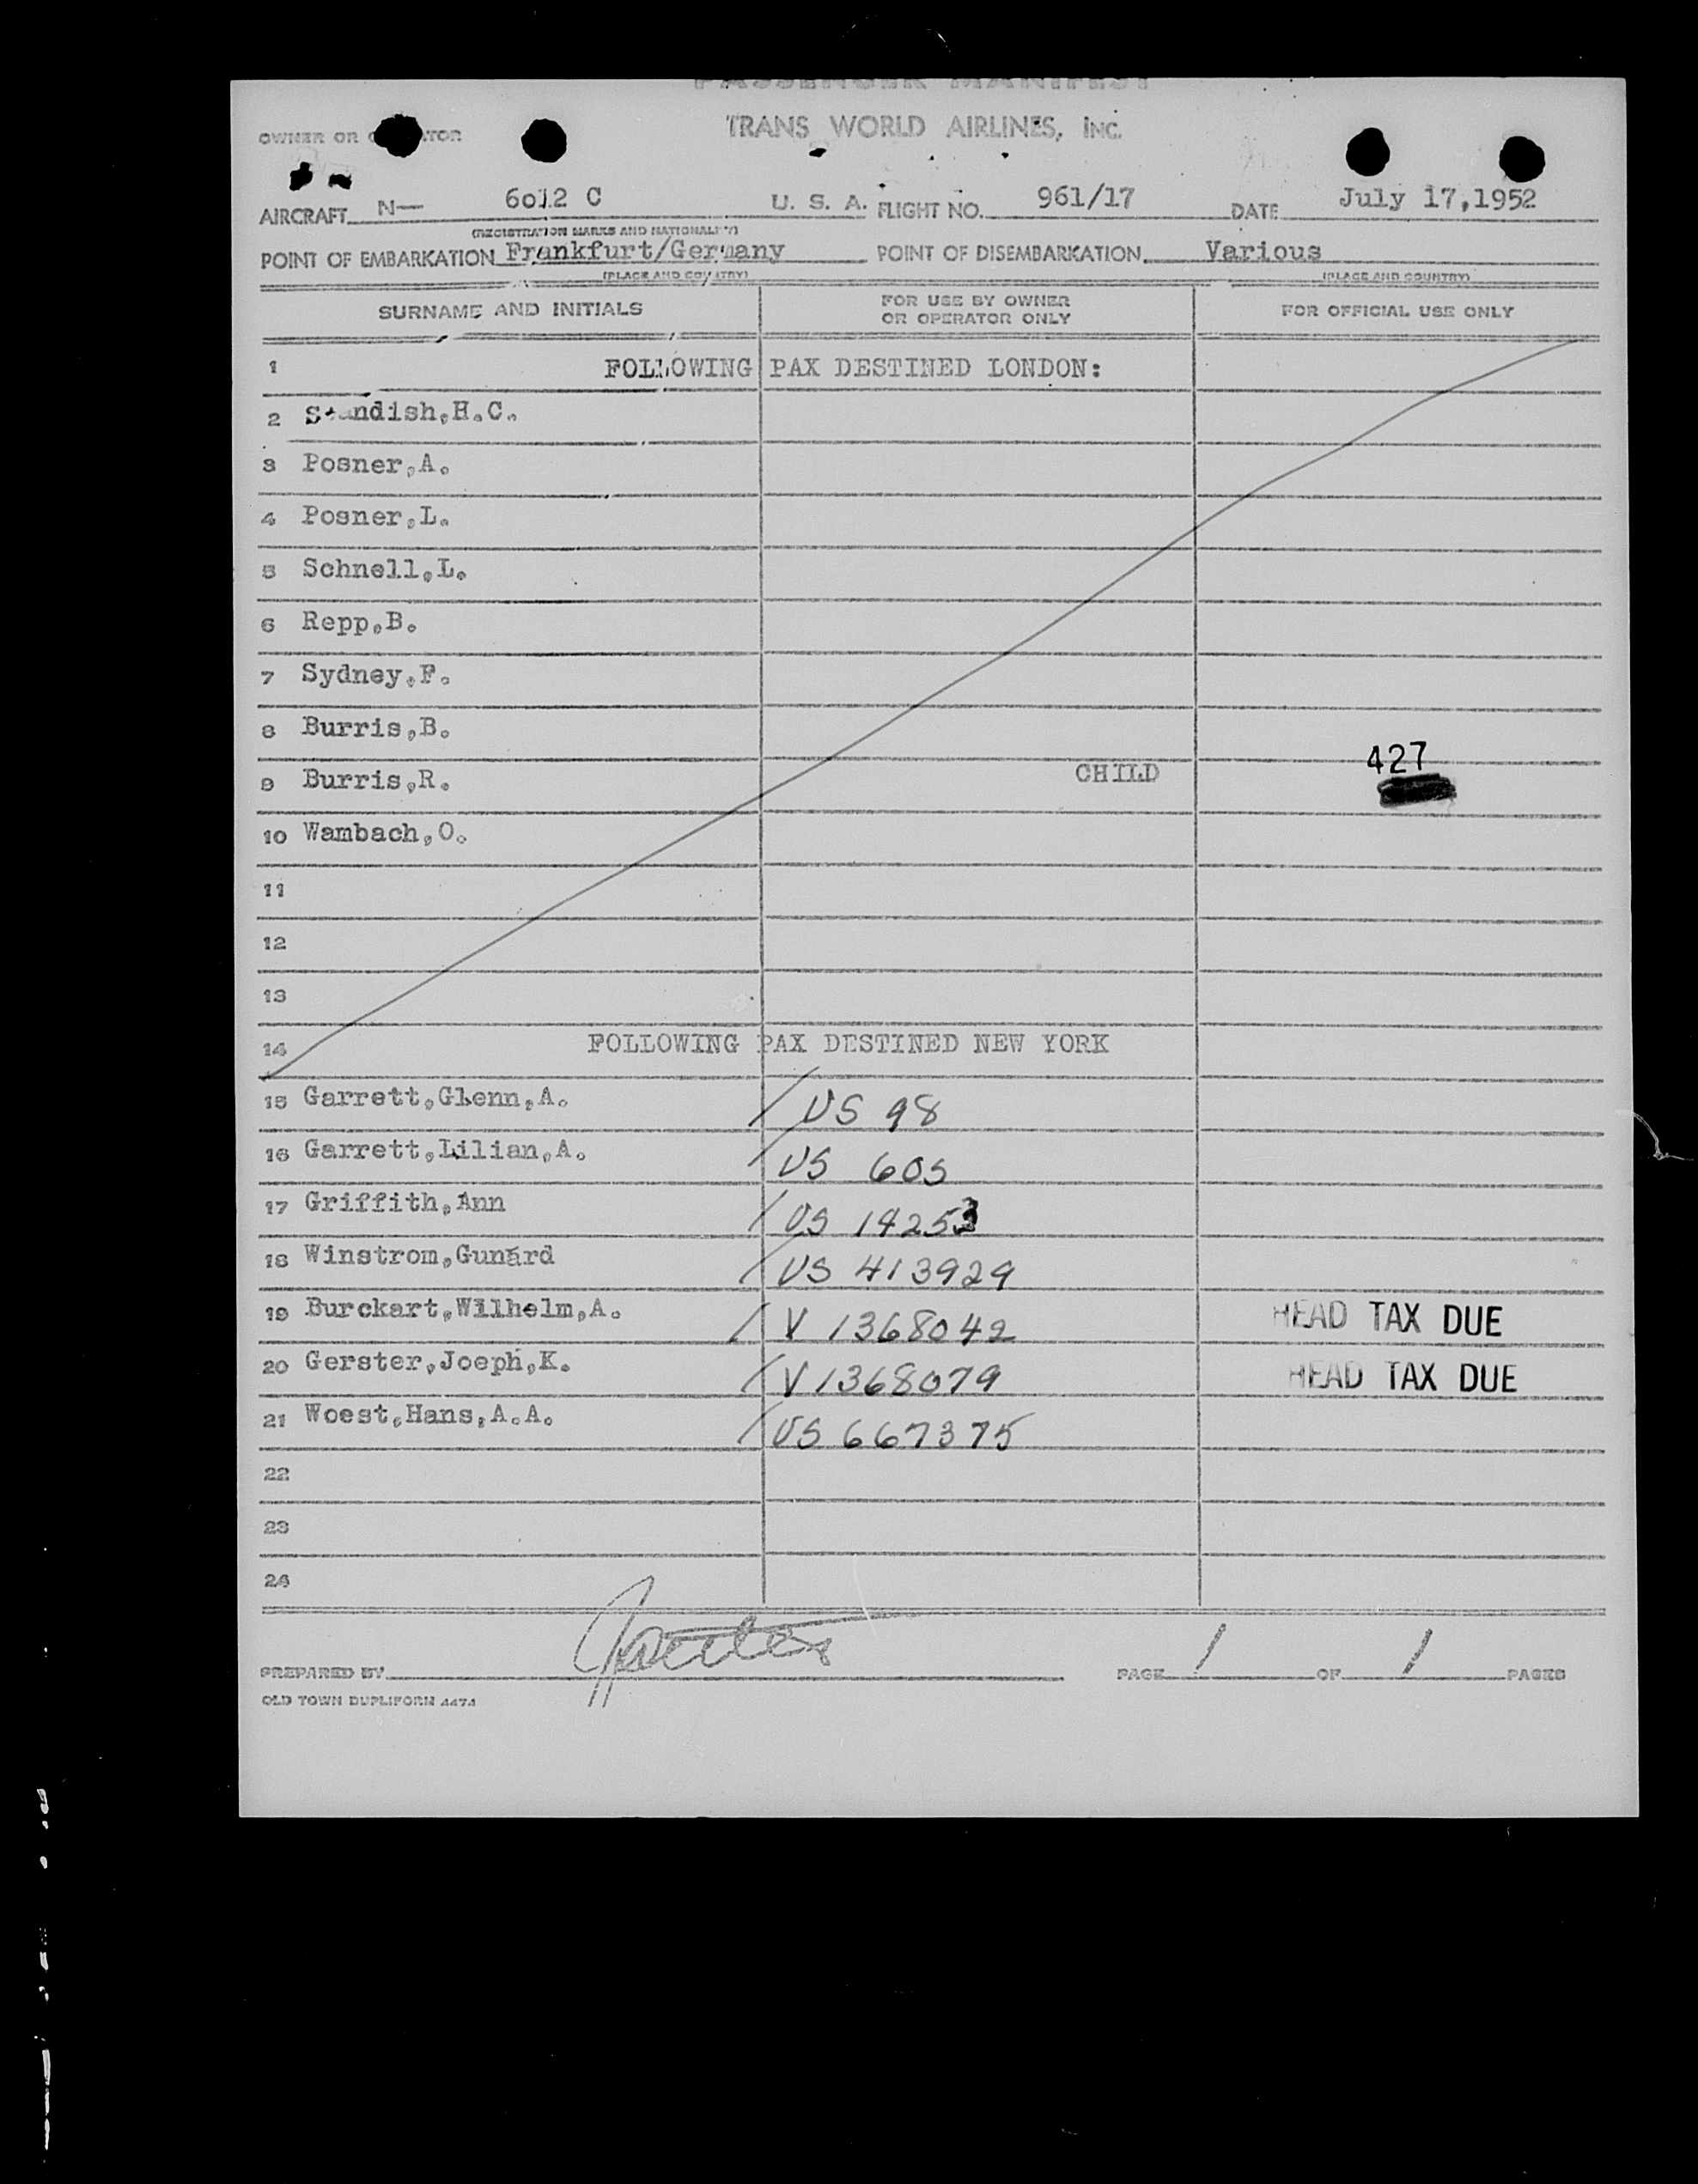 PASSENGER MANIFEST
OWNER OR OPERATOR TRANS WORLD AIRLINES, INC.
AIRCRAFT N— 6012 C U. S. A. FLIGHT NO. 961/17 DATE July 17,1952
(REGISTRATION MARKS AND NATIONALITY)
POINT OF EMBARKATION Frankfurt/Germany POINT OF DISEMBARKATION Various
(PLACE AND COUNTRY) (PLACE AND COUNTRY)
SURNAME AND INITIALS FOR USE BY OWNER OR OPERATOR ONLY FOR OFFICIAL USE ONLY
1 FOLLOWING PAX DESTINED LONDON:
2 Standish,H.C.
3 Posner,A.
4 Posner,L.
5 Schnell,L.
6 Repp,B.
7 Sydney,F.
8 Burris,B.
9 Burris,R. CHILD 427
10 Wambach,O.
11
12
13
14 FOLLOWING PAX DESTINED NEW YORK
15 Garrett,Glenn,A. US 98
16 Garrett,Lilian,A. US 605
17 Griffith,Ann US 14253
18 Winstrom,Gunard US 413929
19 Burckart,Wilhelm,A. V 1368042 HEAD TAX DUE
20 Gerster,Joeph,K. V 1368079 HEAD TAX DUE
21 Woest,Hans,A.A. US 667375
22
23
24
PREPARED BY PAGE 1 OF 1 PAGES
OLD TOWN DUPLIFORM 4474